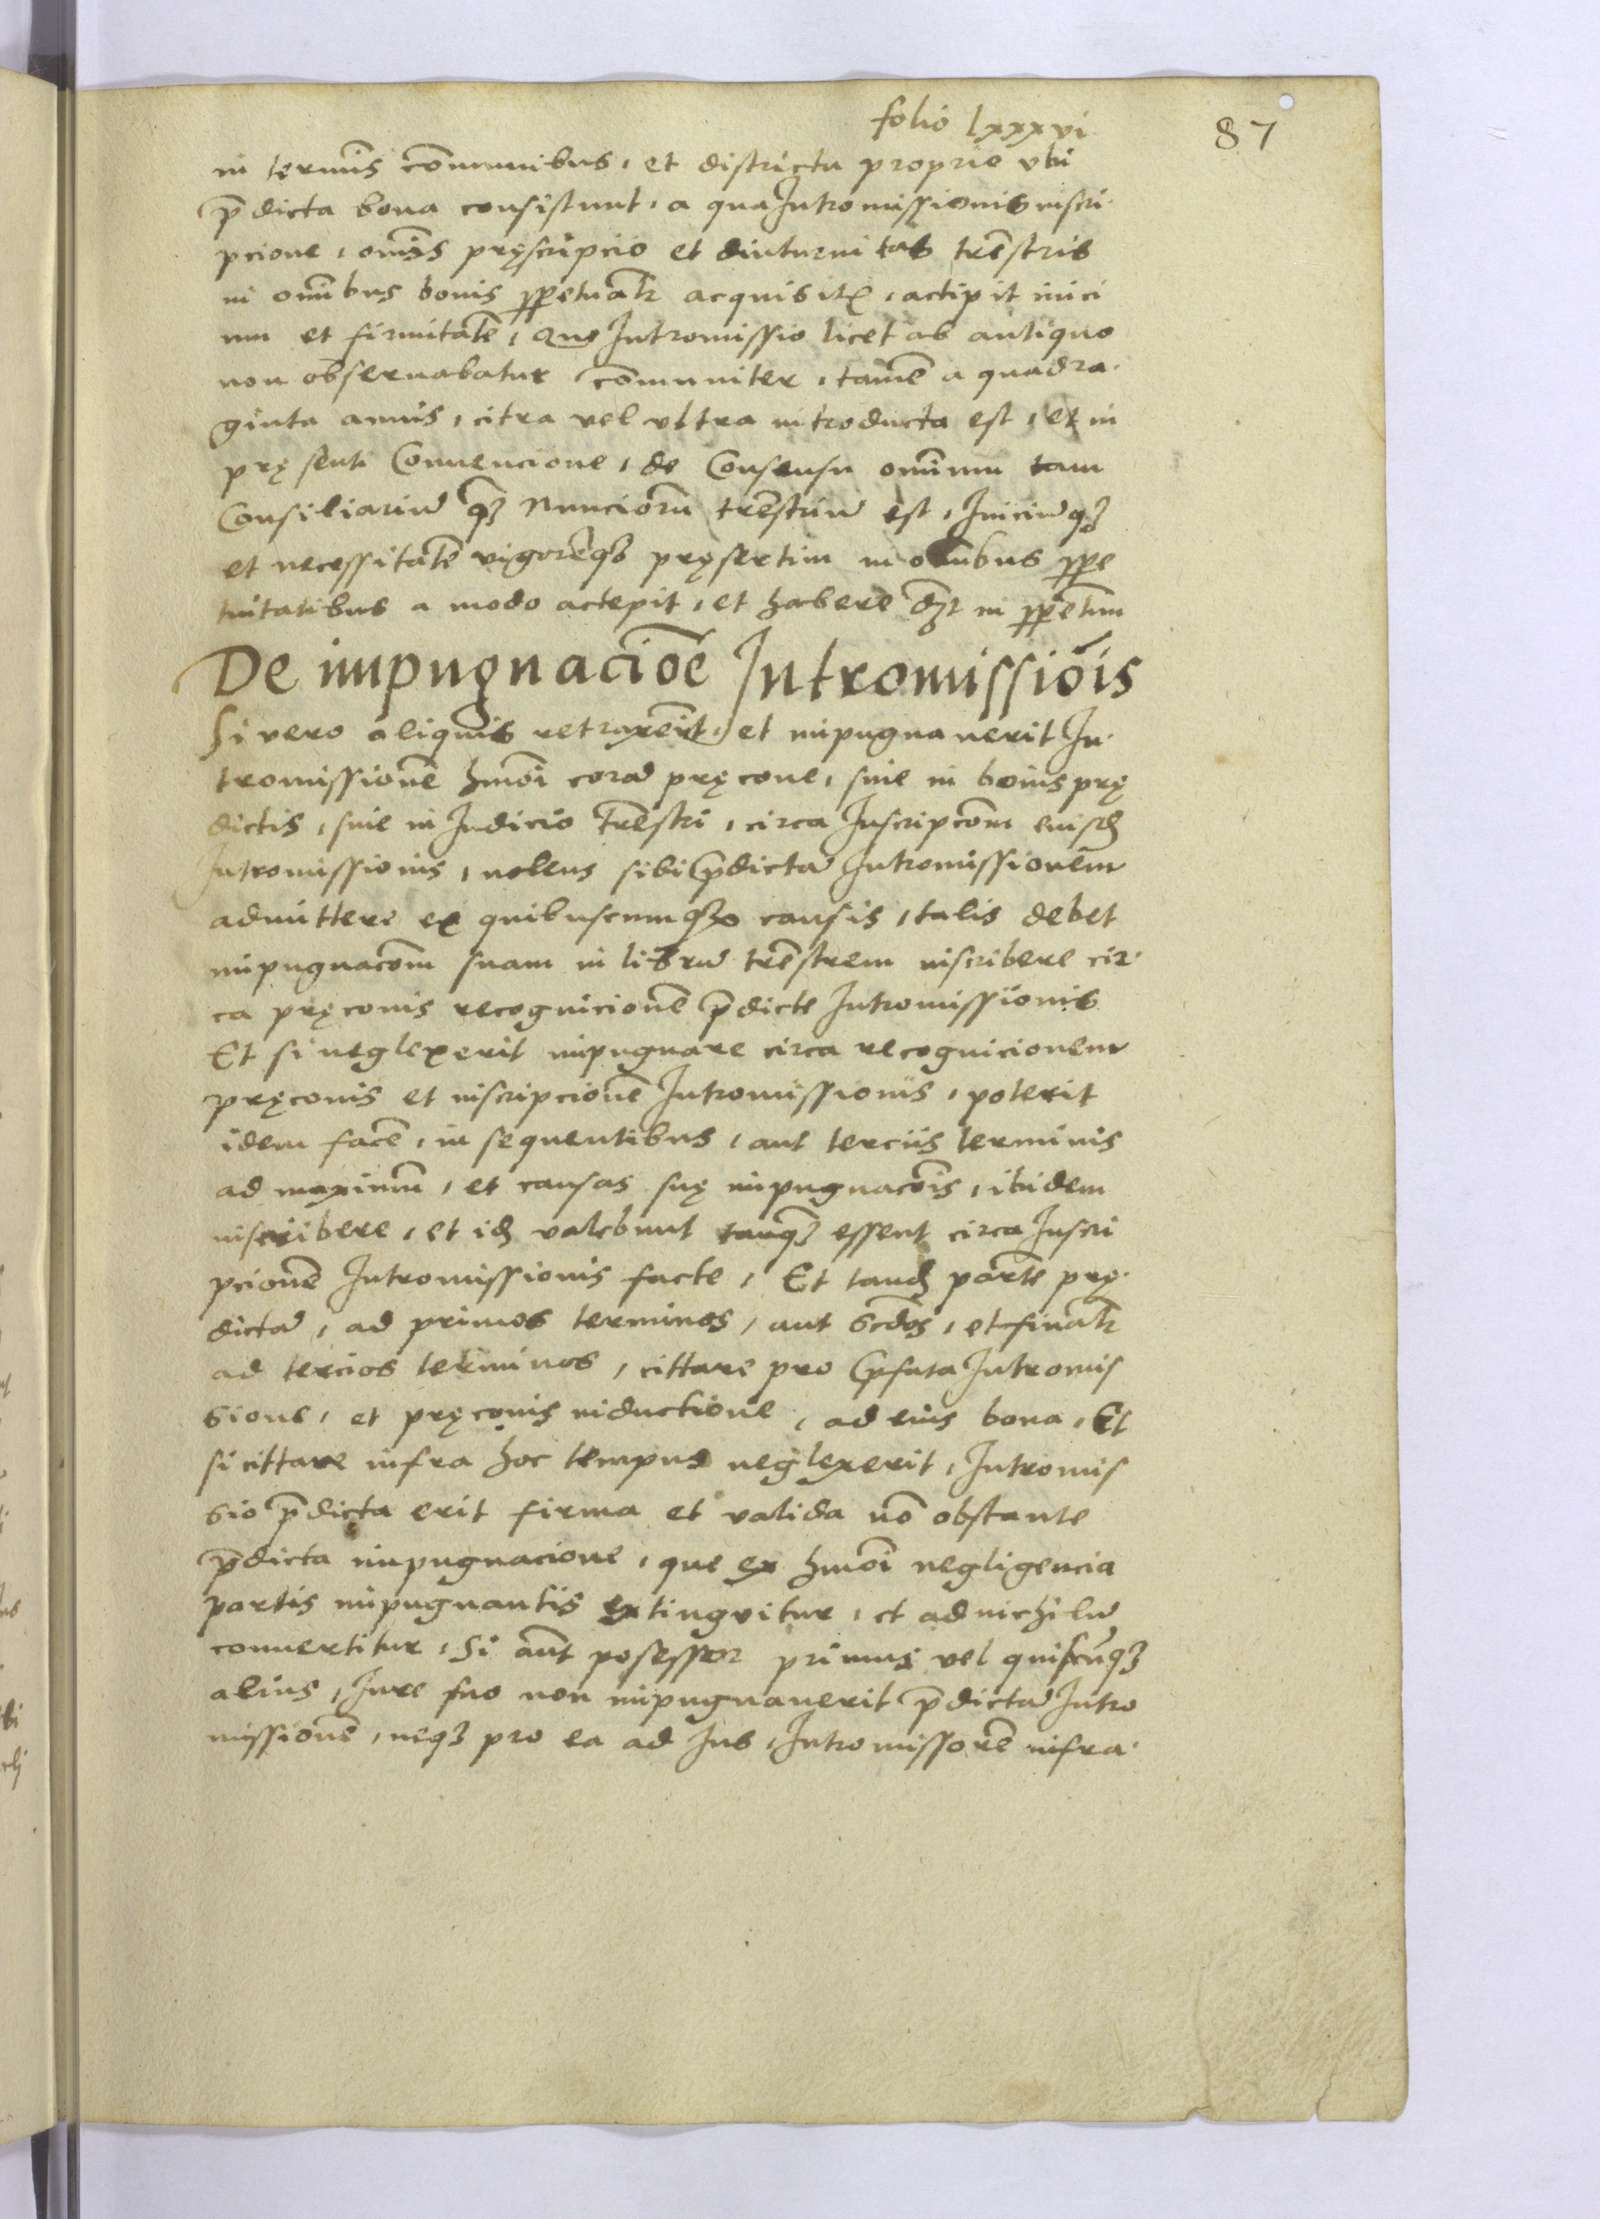 folio lxxxvi
87
in termīs cōmunibus, et districta proprie vbi
p̄dicta bona consistunt, a qua Intromissionis inscri-
pcione, om̄is pręscripcio et diuturnitas trēstris
in om̄ibus bonis p̱petuatr̄ acquisitꝭ, actipit inici
um et firmitatē, Que Intromissio licet ab antiquo
non obseruabatur cōmuniter, tamē a quadra-
ginta annis, citra vel vltra introducta est, et in
pręsenti Conuencione, de Consensu omīum tam
Consiliariū qꝫ Nuncioru trēstriū est, Iniciūqꝫ
et necessitatē vigorēqꝫ pręsertim in om̄ibus p̱pe
tuitatibus a modo actepit, et habere in p̱petuum
De impugnaciōe Intromissiōis
Si vero aliquis retraxerit, et impugnauerit In-
tromissionē hmōi corā pręcone, siue in bonis prę
dictis, siue in Iudicio trēstri, circa Inscripcōm euisdē
Intromissionis, nolens sibi p̄dictā Intromissionem
admittere ex quibuscumqꝫ causis, talis debet
impugnacōm suam in librū trēstrem inscribere cir-
ca pręconis recognicionē p̄dicte Intromissionis
Et si neglexerit impugnare circa recognicionem
pręconis et inscripcionē Intromissionis, poterit
idem facē, in sequentibus, aut terciis terminis
ad maximum, et causas suę impugnacōis, ibidem
inscribere, et id valebunt tanqꝫ essent circa Inscri
pcionē Intromissionis facte, Et tandē partē prę-
dictā, ad primos terminos, aut scdos, et finatr̄
ad tercios terminos, cittare pro p̄fata Intromis
sione, et pręconis inductione, ad eius bona, Et
si cittare infra hoc tempus neglexerit, Intromis
sio p̄dicta erit firma et valida nō obstante
p̄dicta impugnacione, que ex hmōi negligencia
partis impugnantis extingvitur, et ad nichilū
conuertitur, Si aūt posessor primus vel quiscūqꝫ
alius, Iure suo non impugnauerit p̄dictā Intro
missionē, neqꝫ pro ea ad Ius, Intromissorē infra-